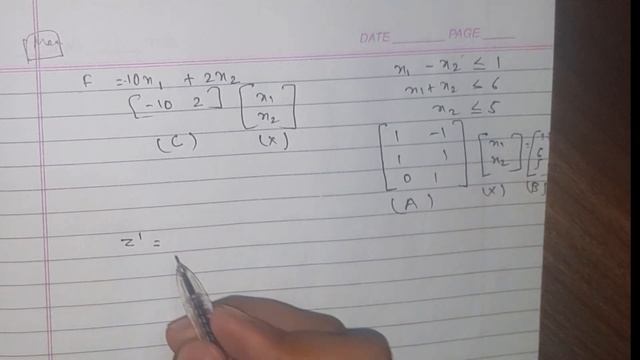 Max
DATE PAGE
F = -10x₁ + 2x₂
[-10 2] [x₁
x₂]
(C) (X)
x₁ - x₂ ≤ 1
x₁ + x₂ ≤ 6
x₂ ≤ 5
[1 -1
1 1
0 1] [x₁
x₂] =
(A) (X) (B)
z' =